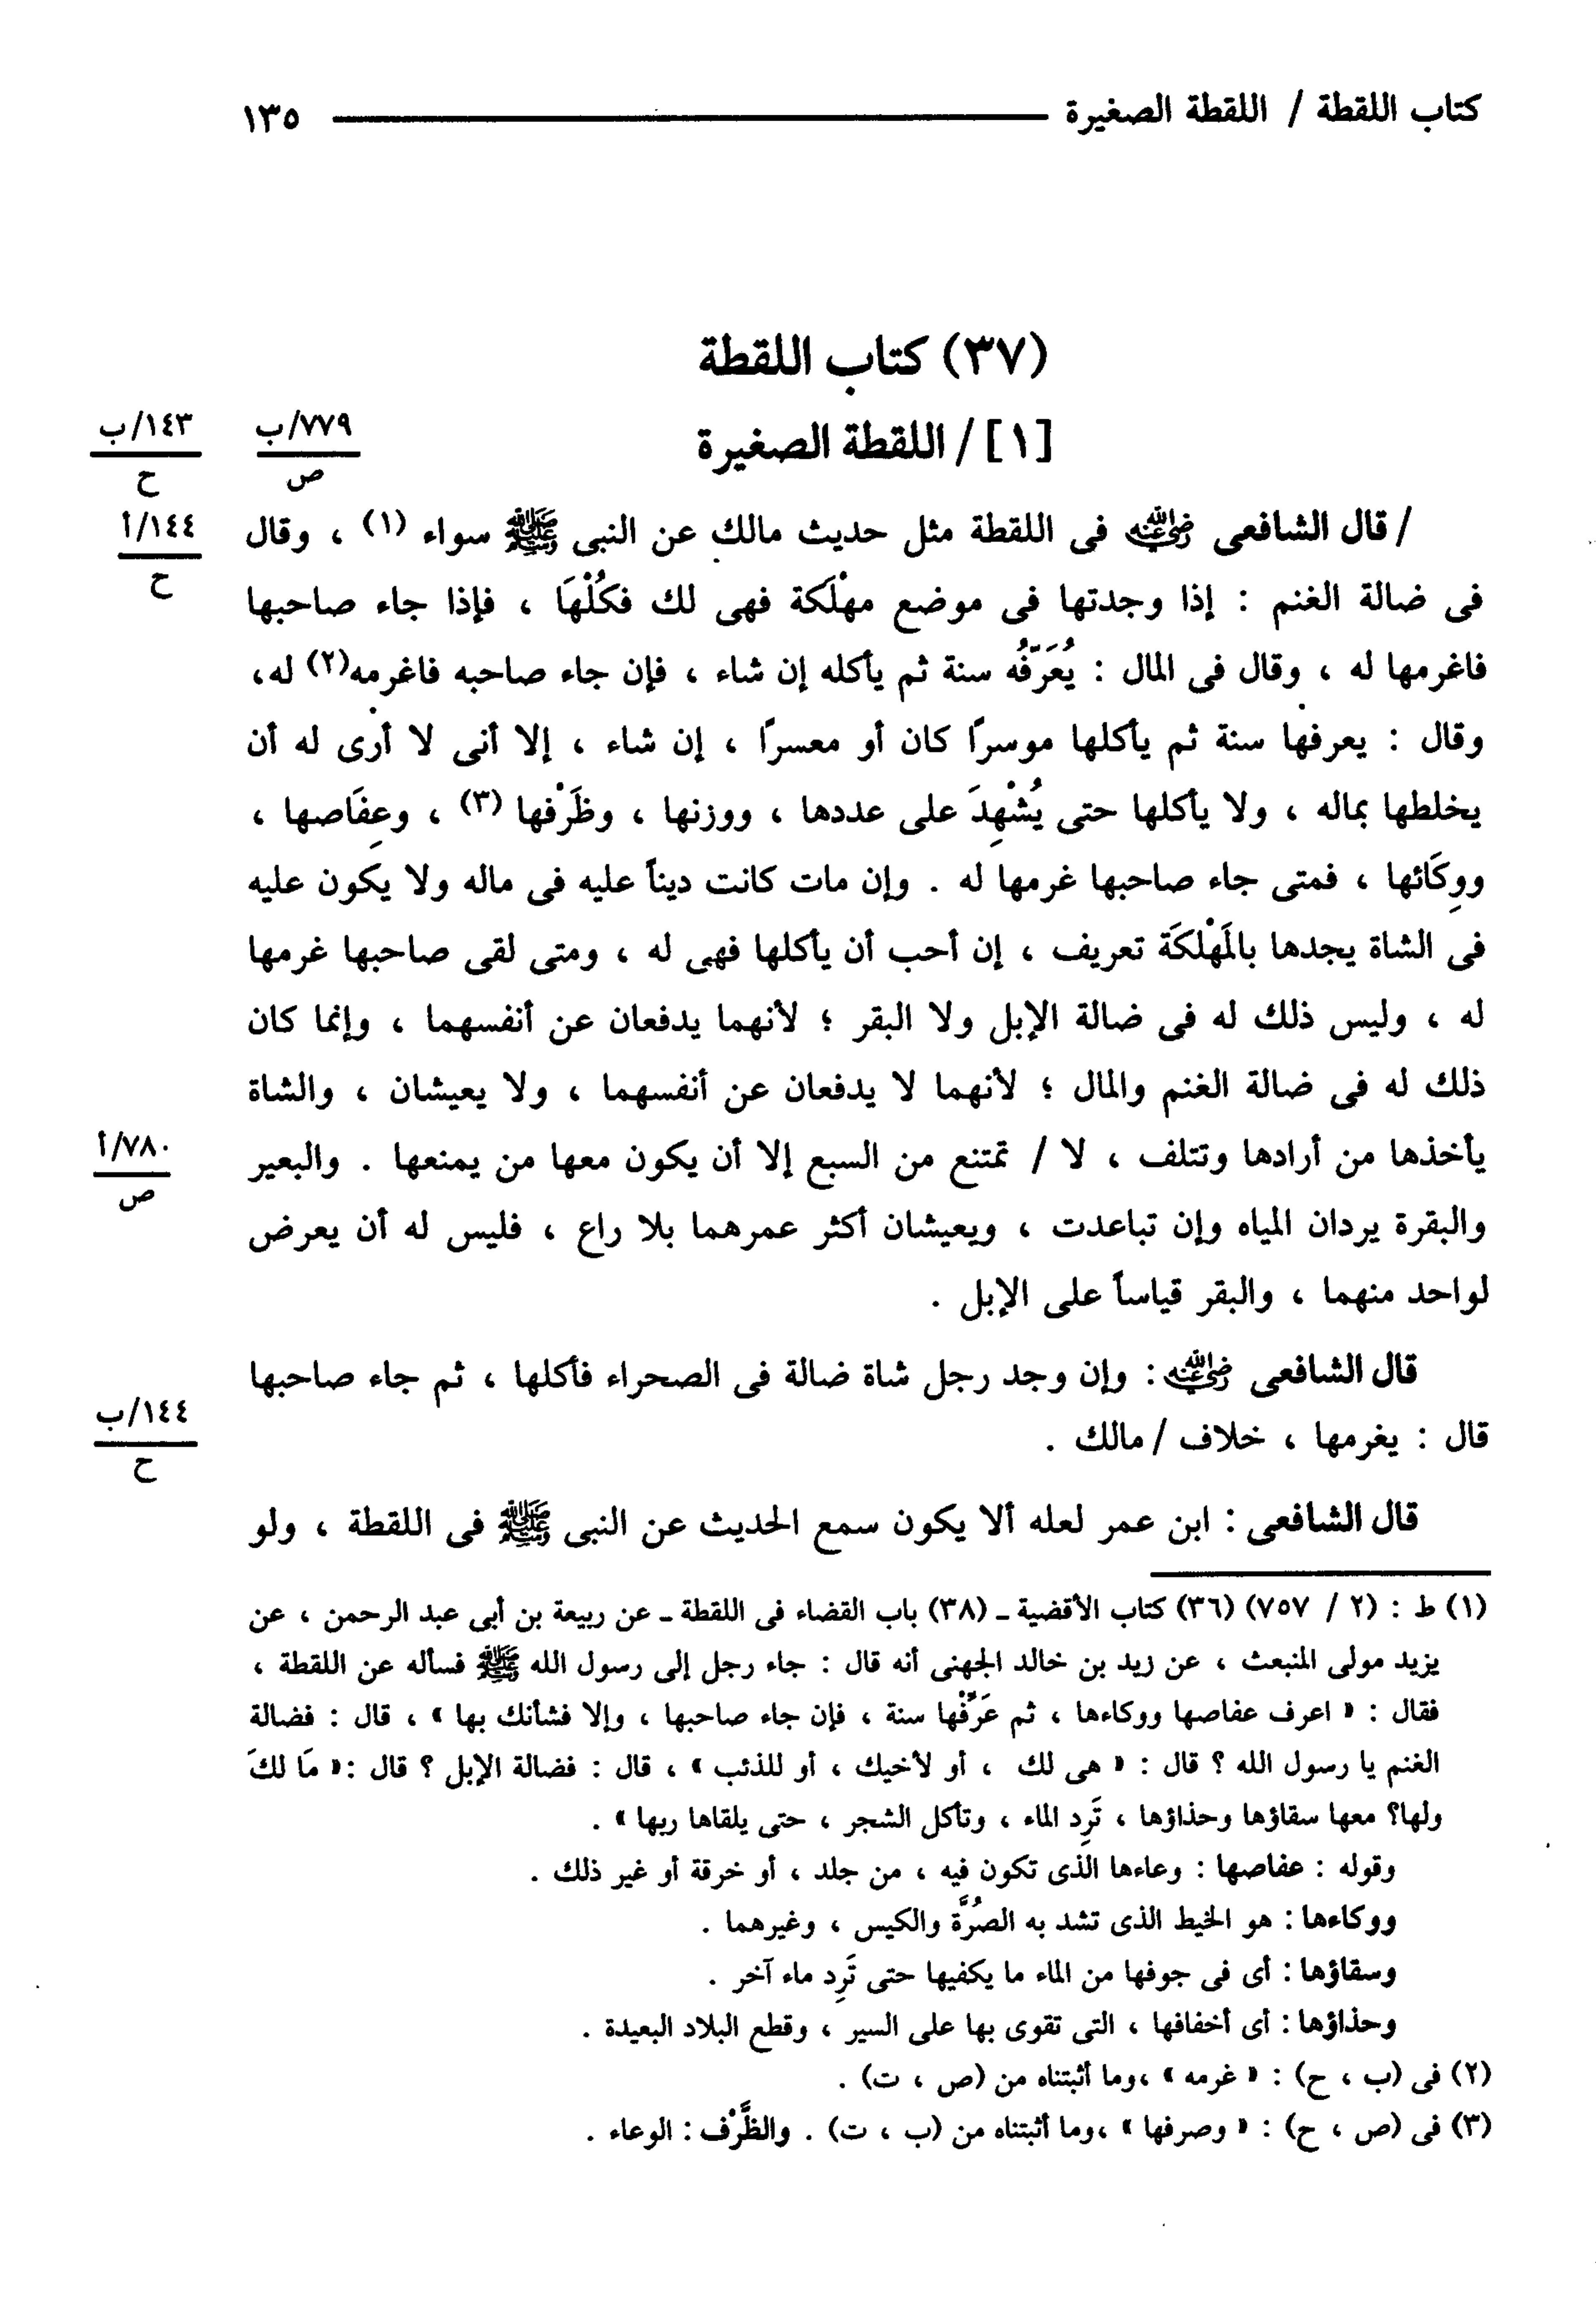 كتاب اللقطة / اللقطة الصغيرة ١٣٥
(٣٧) كتاب اللقطة
[١] / اللقطة الصغيرة
٧٧٩/ب
ص
١٤٣/ب
ح
/ قال الشافعى رضي الله عنه فى اللقطة مثل حديث مالك عن النبى ﷺ سواء (١) ، وقال
١٤٤/أ
ح
فى ضالة الغنم : إذا وجدتها فى موضع مهْلَكة فهى لك فكُلْهَا ، فإذا جاء صاحبها
فاغرمها له ، وقال فى المال : يُعَرِّفُه سنة ثم يأكله إن شاء ، فإن جاء صاحبه فاغرمه(٢) له،
وقال : يعرفها سنة ثم يأكلها موسرًا كان أو معسرًا ، إن شاء ، إلا أنى لا أرى له أن
يخلطها بماله ، ولا يأكلها حتى يُشْهِدَ على عددها ، ووزنها ، وظَرْفها (٣) ، وعِفَاصها ،
ووِكَائها ، فمتى جاء صاحبها غرمها له . وإن مات كانت دينًا عليه فى ماله ولا يكون عليه
فى الشاة يجدها بالمَهْلكَة تعريف ، إن أحب أن يأكلها فهى له ، ومتى لقى صاحبها غرمها
له ، وليس ذلك له فى ضالة الإبل ولا البقر ؛ لأنهما يدفعان عن أنفسهما ، وإنما كان
ذلك له فى ضالة الغنم والمال ؛ لأنهما لا يدفعان عن أنفسهما ، ولا يعيشان ، والشاة
يأخذها من أرادها وتتلف ، لا / تمتنع من السبع إلا أن يكون معها من يمنعها . والبعير
٧٨٠/أ
ص
والبقرة يردان المياه وإن تباعدت ، ويعيشان أكثر عمرهما بلا راع ، فليس له أن يعرض
لواحد منهما ، والبقر قياسًا على الإبل .
قال الشافعى رضي الله عنه : وإن وجد رجل شاة ضالة فى الصحراء فأكلها ، ثم جاء صاحبها
قال : يغرمها ، خلاف / مالك .
١٤٤/ب
ح
قال الشافعى : ابن عمر لعله ألا يكون سمع الحديث عن النبى ﷺ فى اللقطة ، ولو
(١) ط : (٢ / ٧٥٧) (٣٦) كتاب الأقضية ـ (٣٨) باب القضاء فى اللقطة ـ عن ربيعة بن أبى عبد الرحمن ، عن
يزيد مولى المنبعث ، عن زيد بن خالد الجهنى أنه قال : جاء رجل إلى رسول الله ﷺ فسأله عن اللقطة ،
فقال : « اعرف عفاصها ووكاءها ، ثم عَرِّفْها سنة ، فإن جاء صاحبها ، وإلا فشأنك بها » ، قال : فضالة
الغنم يا رسول الله ؟ قال : « هى لك ، أو لأخيك ، أو للذئب » ، قال : فضالة الإبل ؟ قال :« مَا لكَ
ولها؟ معها سقاؤها وحذاؤها ، تَرِد الماء ، وتأكل الشجر ، حتى يلقاها ربها » .
وقوله : عفاصها : وعاءها الذى تكون فيه ، من جلد ، أو خرقة أو غير ذلك .
ووكاءها : هو الخيط الذى تشد به الصُرَّة والكيس ، وغيرهما .
وسقاؤها : أى فى جوفها من الماء ما يكفيها حتى تَرِد ماء آخر .
وحذاؤها : أى أخفافها ، التى تقوى بها على السير ، وقطع البلاد البعيدة .
(٢) فى (ب ، ح) : « غرمه » ،وما أثبتناه من (ص ، ت) .
(٣) فى (ص ، ح) : « وصرفها » ،وما أثبتناه من (ب ، ت) . والظَّرْف : الوعاء .